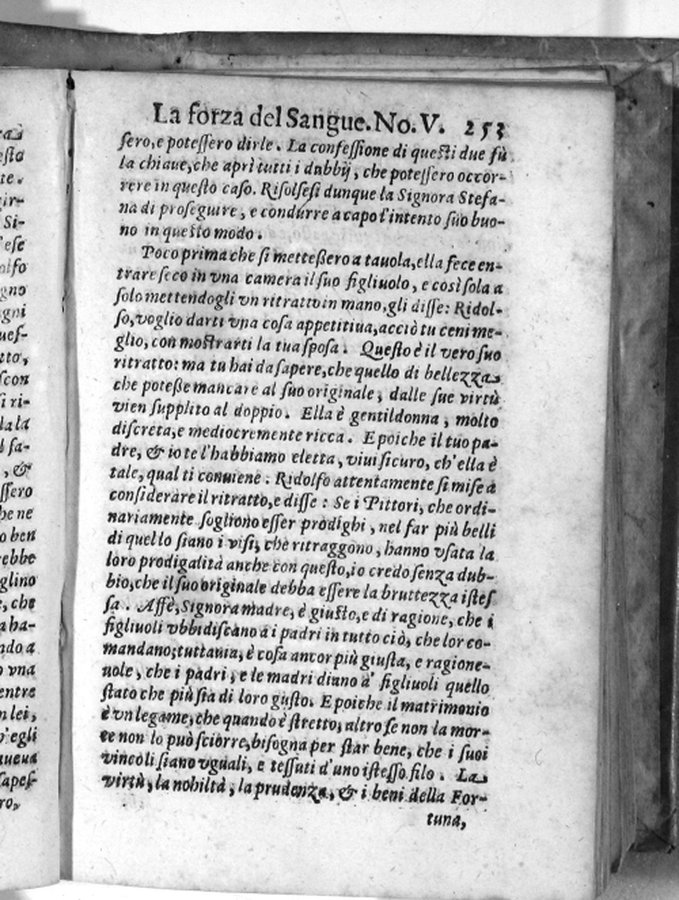 La forza del Sangue. No. V. 253
sero, e potessero dirle. La confessione di questi due fù
la chiaue, che aprì tutti i dubbij, che potessero occor-
rere in questo caso. Risolsesi dunque la Signora Stefa-
na di proseguire, e condurre a capo l'intento suo buo-
no in questo modo.
Poco prima che si mettessero a tauola, ella fece en-
trare seco in vna camera il suo figliuolo, e così sola a
solo mettendogli vn ritratto in mano, gli disse: Ridol-
fo, voglio darti vna cosa appetitiua, acciò tu ceni me-
glio, con mostrarti la tua sposa. Questo è il vero suo
ritratto: ma tu hai da sapere, che quello di bellezza
che potesse mancare al suo originale, dalle sue virtù
vien supplito al doppio. Ella è gentildonna, molto
discreta, e mediocremente ricca. E poiche il tuo pa-
dre, & io te l'habbiamo eletta, viui sicuro, ch'ella è
tale, qual ti conuiene. Ridolfo attentamente si mise a
considerare il ritratto, e disse: Se i Pittori, che ordi-
nariamente sogliono esser prodighi, nel far più belli
di quello siano i visi, che ritraggono, hanno vsata la
loro prodigalità anche con questo, io credo senza dub-
bio, che il suo originale debba essere la bruttezza istes
sa. Affè, Signora madre, è giusto, e di ragione, che i
figliuoli vbbidiscano a i padri in tutto ciò, che lor co-
mandano; tuttauia, è cosa ancor più giusta, e ragione-
uole, che i padri, e le madri diano a' figliuoli quello
stato che più sia di loro gusto. E poiche il matrimonio
è vn legame, che quando è stretto, altro se non la mor-
te non lo può sciorre, bisogna per star bene, che i suoi
vincoli siano vguali, e tessuti d'uno istesso filo. La
virtù, la nobiltà, la prudenza, & i beni della For-
tuna,